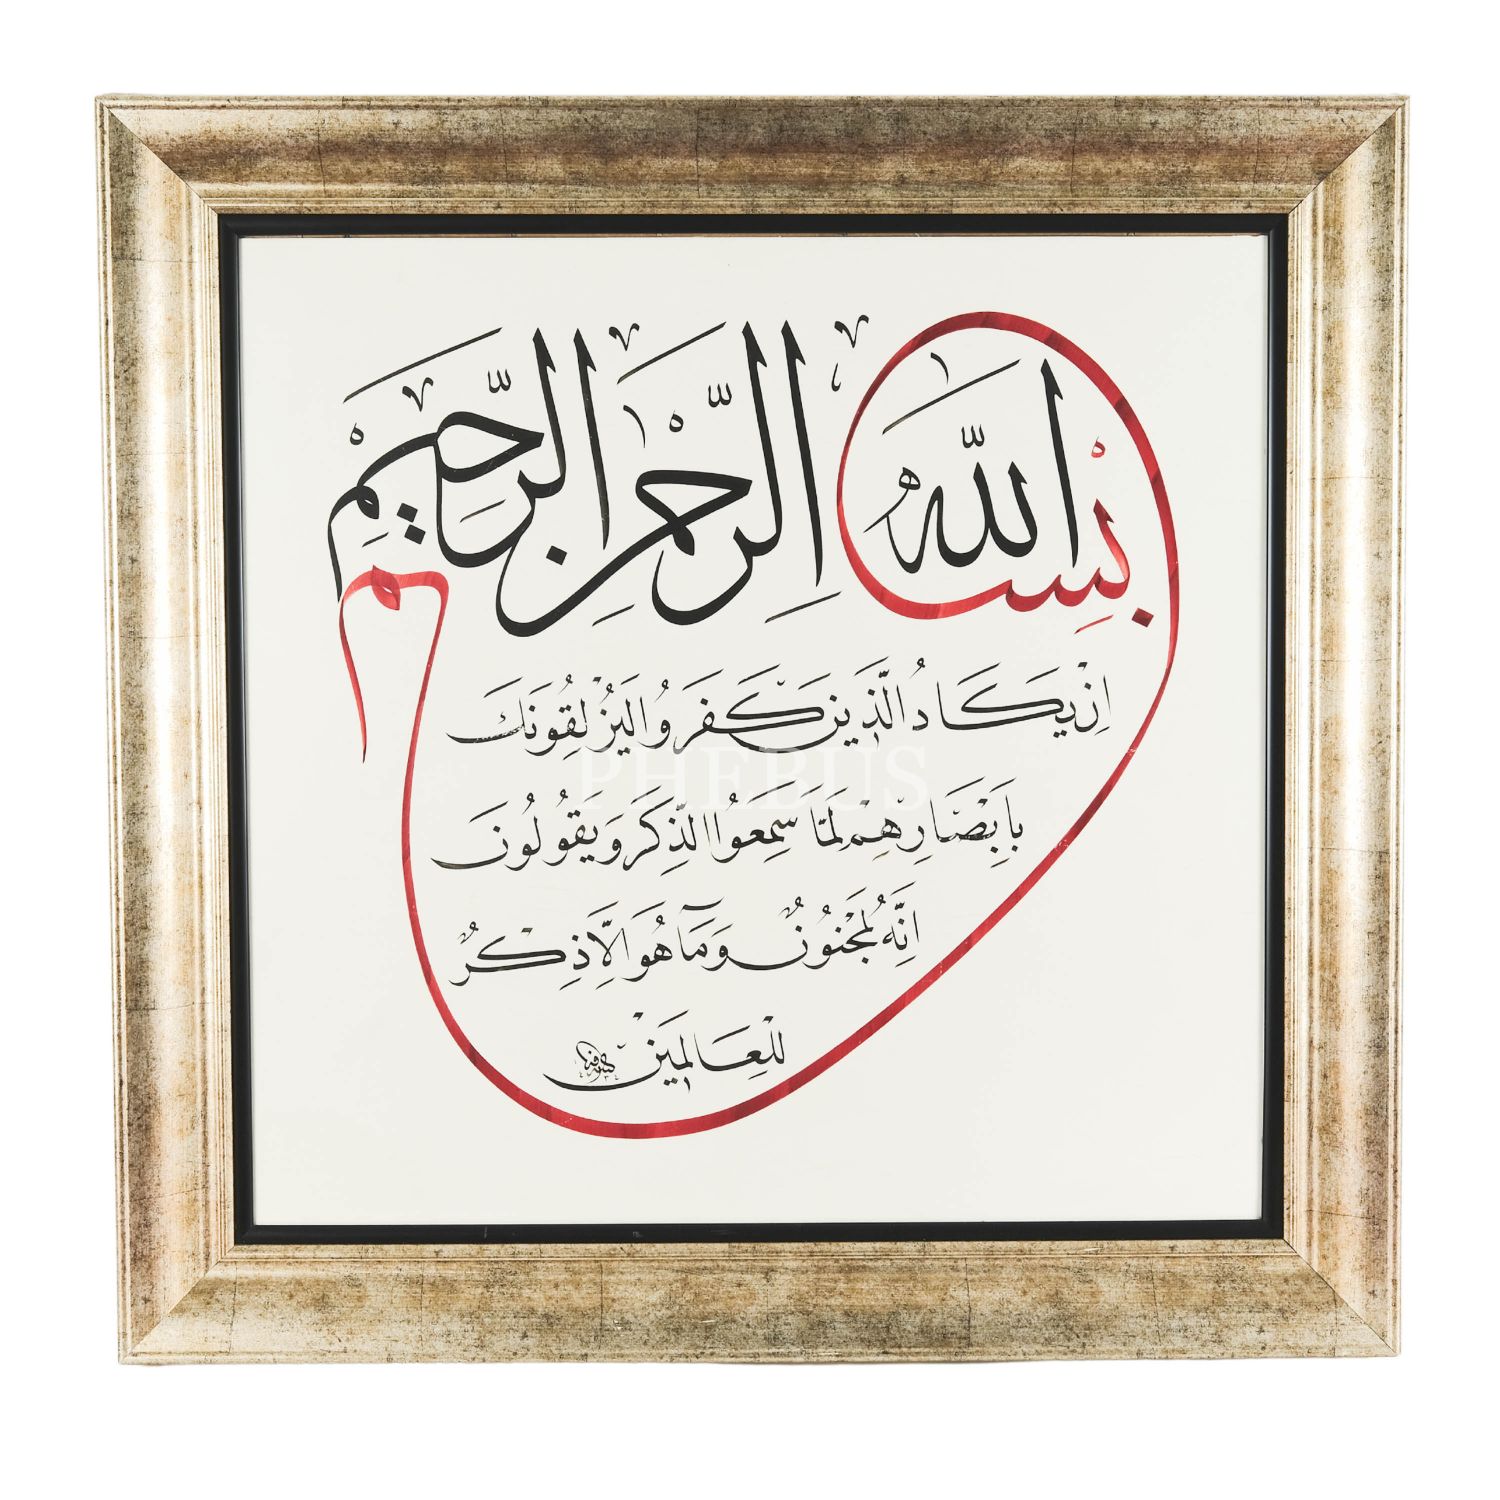 بِسْمِ اللّٰهِ الرَّحْمٰنِ الرَّحِيمِ
اِنْ يَكَادُ الَّذِينَ كَفَرُوا لَيُزْلِقُونَكَ
بِاَبْصَارِهِمْ لَمَّا سَمِعُوا الذِّكْرَ وَيَقُولُونَ
اِنَّهُ لَمَجْنُونٌ وَمَا هُوَ اِلَّا ذِكْرٌ
لِلْعَالَمِينَ
PHEBUS